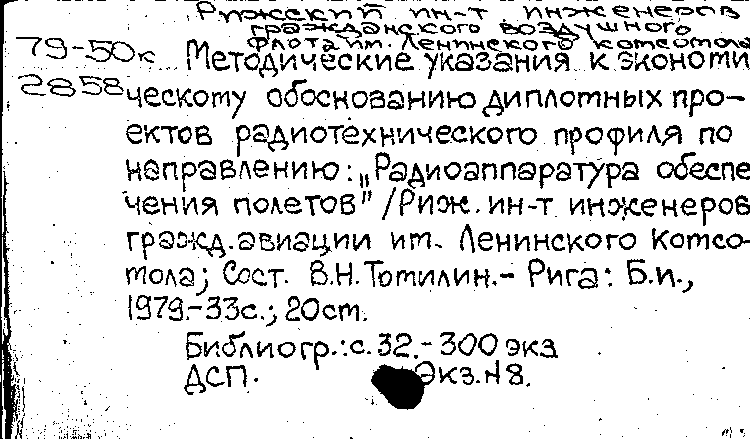 Рижский ин-т инженеров
гражданского воздушного
флота им. Ленинского комсомола
79-50к Методические указания к экономи
2858 ческому обоснованию дипломных про-
ектов радиотехнического профиля по
направлению: „Радиоаппаратура обеспе
чения полетов" /Риж. ин-т инженеров
гражд. авиации им. Ленинского Комсо-
мола; Сост. В.Н. Томилин.- Рига: Б.и.,
1979.-33с.; 20см.
Библиогр.: с. 32.- 300 экз
ДСП. Экз. N 8.